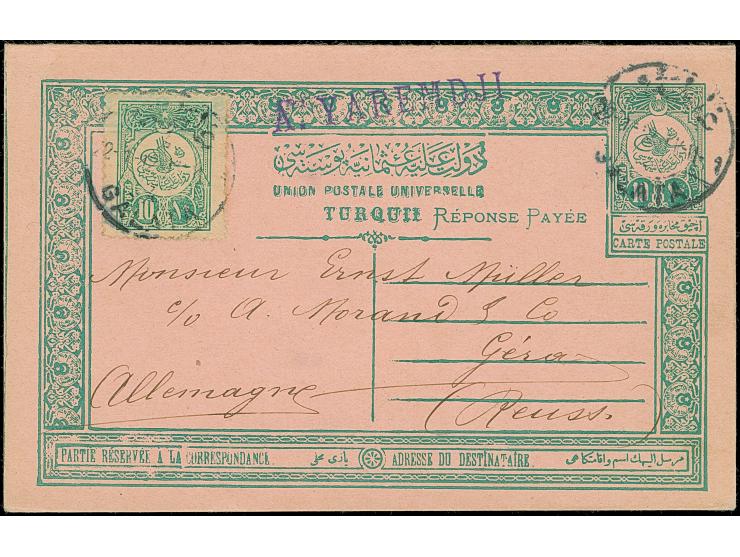 A. YAREMDJI
دولت علیه عثمانیه پوسته‌سی
UNION POSTALE UNIVERSELLE
TURQUIE RÉPONSE PAYÉE
10
GALATA
CARTE POSTALE
Monsieur Ernst Müller
c/o A. Morand & Co
Géra
Allemagne (Reuss)
PARTIE RÉSERVÉE A LA CORRESPONDANCE
ADRESSE DU DESTINATAIRE